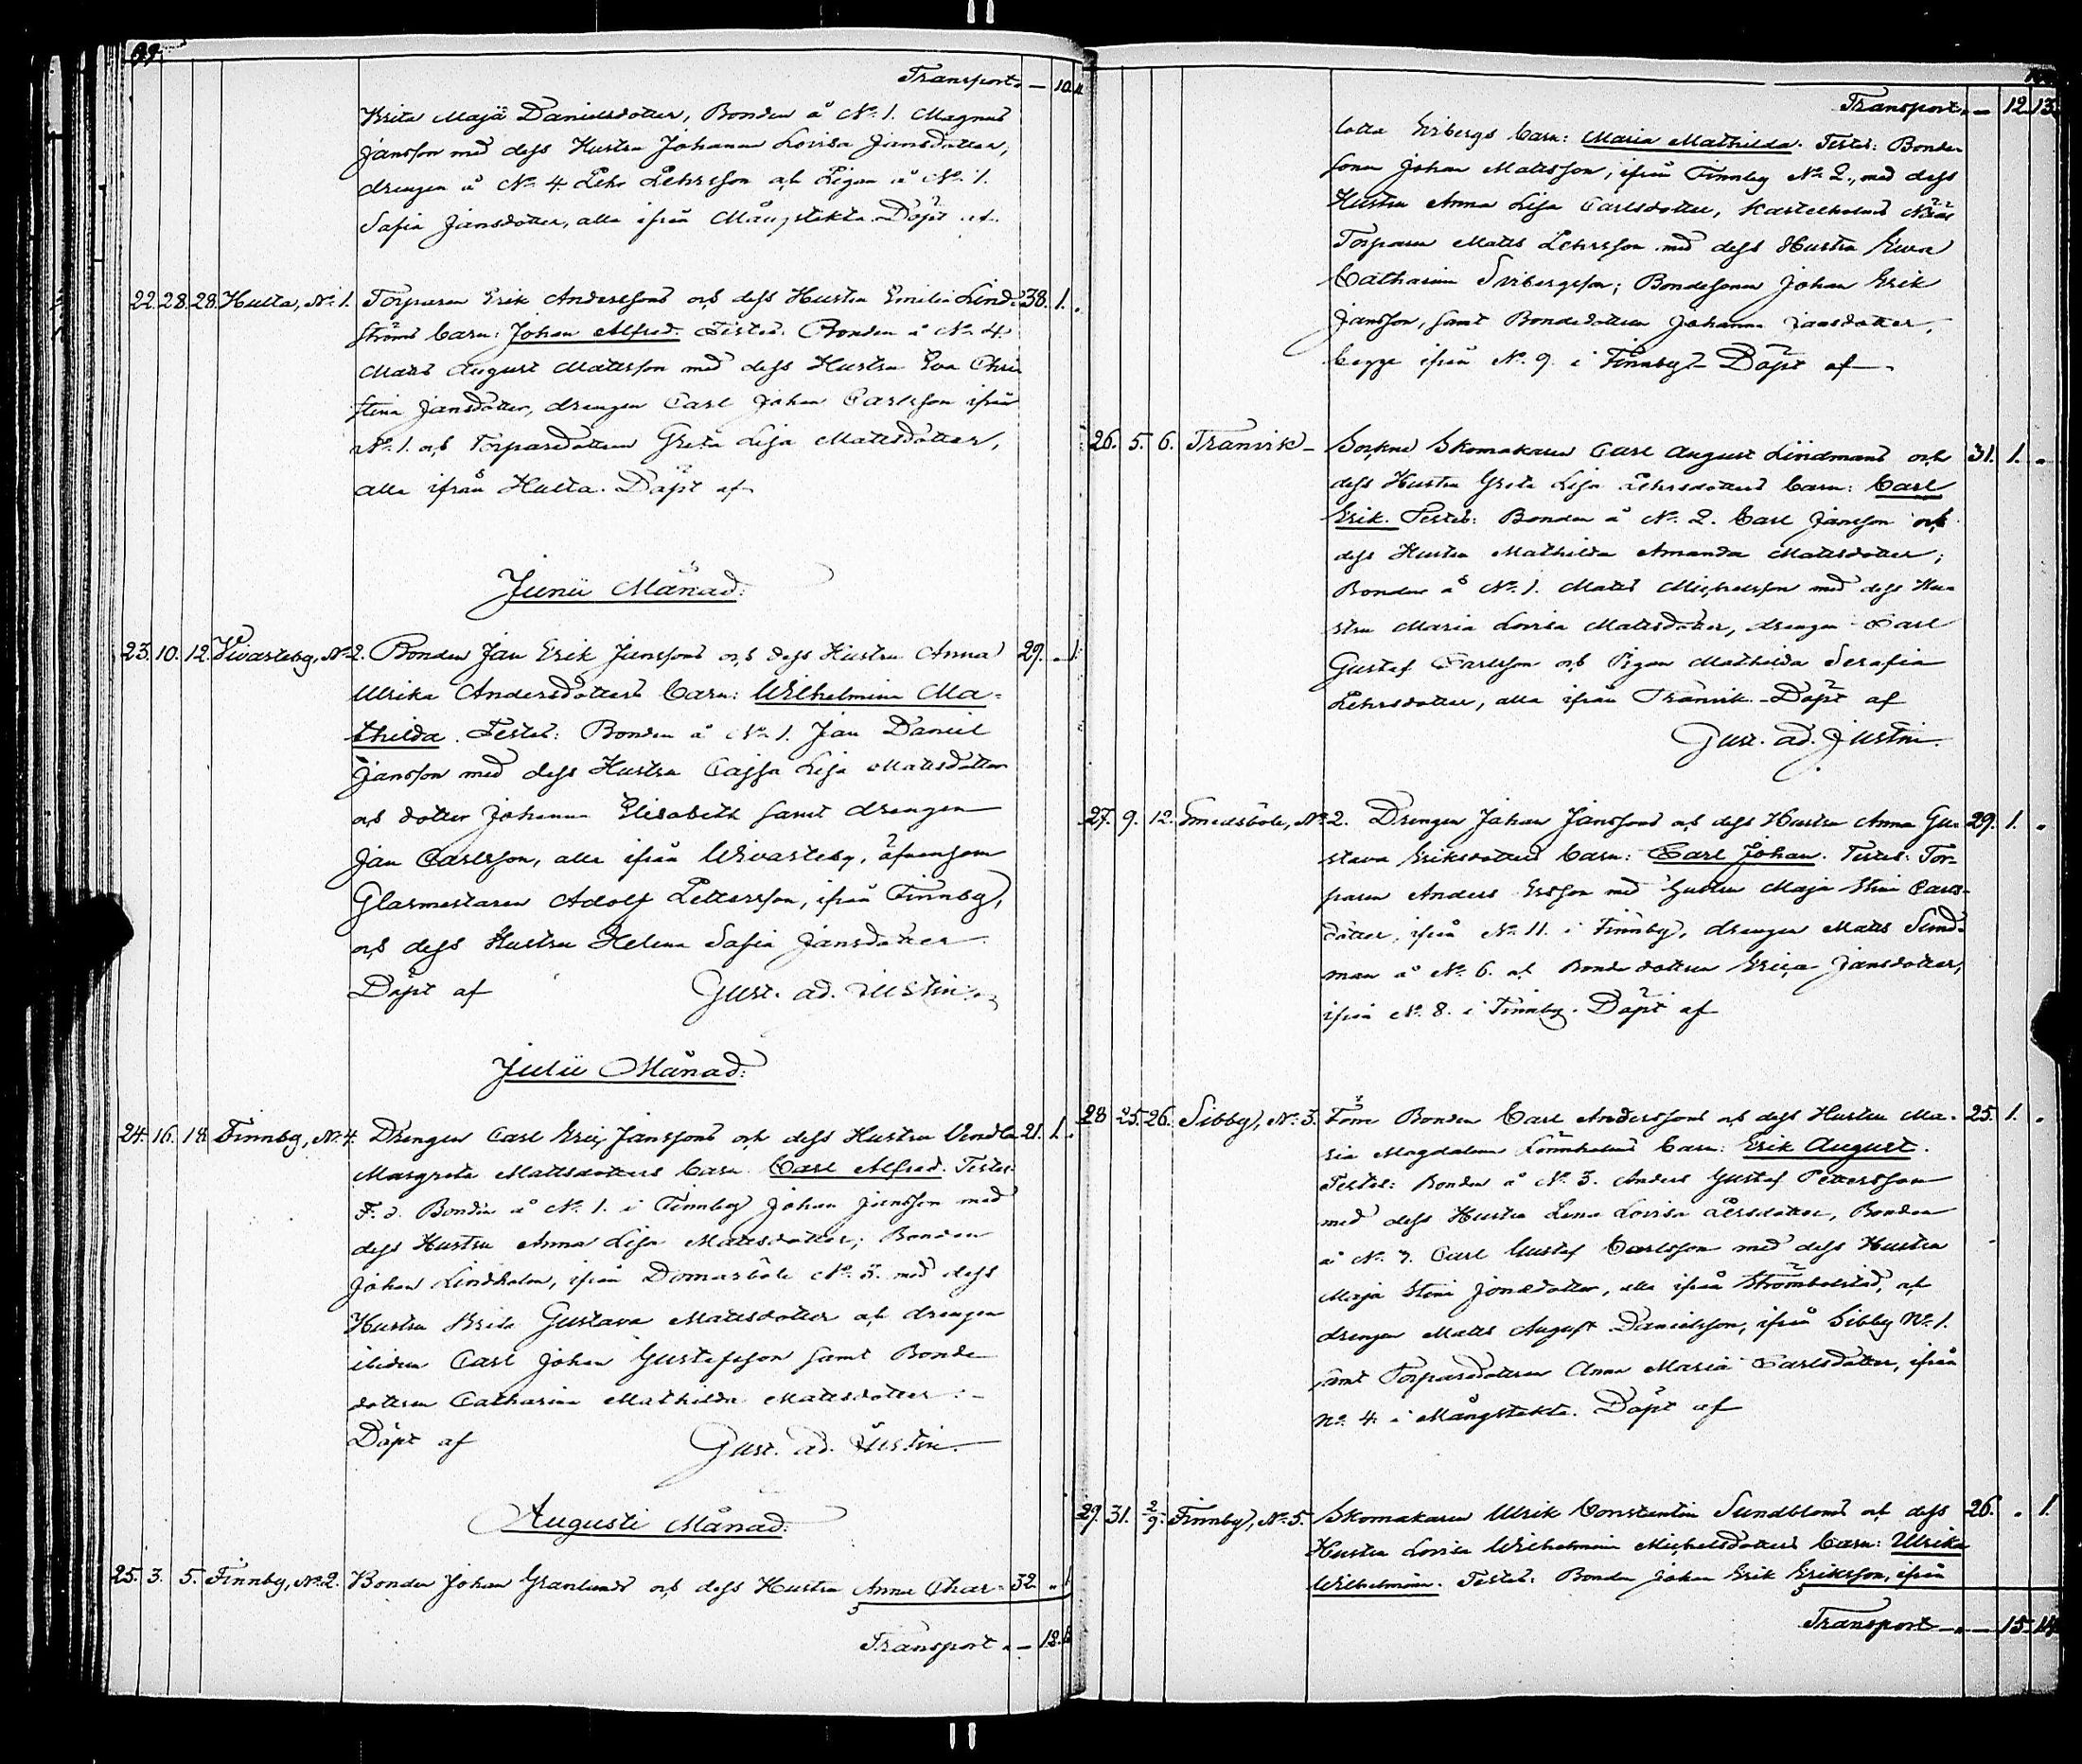 99.
Transport. — 10. 11
Brita Maja Danielsdotter, Bonden å No 1. Magnus
Jansson med dess Hustru Johanna Lovisa Jansdotter,
drengen å No 4 Pehr Pehrsson och Pigan å No 1.
Safia Jansdotter, alla ifrån Mångstekta. Döpt af.
22. 28. 28. Hulta, No 1. Torparen Erik Anderssons och dess Hustru Emilia Lind- 38. 1. .
ströms barn: Johan Alfred. Testes: Bonden å No 4.
Matts August Mattsson med dess Hustru Eva Chri
stina Jansdotter, drengen Carl Johan Carlsson ifrån
No 1. och Torparedottren Greta Lisa Mattsdotter,
alla ifrån Hulta. Döpt af
Junii Månad:
23. 10. 12. Wivastby, No 2. Bonden Jan Erik Janssons och dess Hustru Anna 29. . 1.
Ulrika Andersdotters barn: Wilhelmina Ma-
thilda. Testes: Bonden å No 1. Jan Daniel
Jansson med dess Hustru Cajsa Lisa Mattsdotter
och dotter Johanna Elisabeth samt drengen
Jan Carlsson, alla ifrån Wivastby, äfvensom
Glasmestaren Adolf Pettersson, ifrån Finnby,
och dess Hustru Helena Safia Jansdotter
Döpt af Gust. ad. Justin.
Julii Månad:
24. 16. 18. Finnby, No 4. Drengen Carl Eric Janssons och dess Hustru Vendla 21. 1. .
Margreta Mattsdotters barn Carl Alfred. Testes:
F. d. Bonden å No 1. i Finnby Johan Jansson med
dess Hustru Anna Lisa Mattsdotter; Bonden
Johan Lindholm, ifrån Domarböle No 3. med dess
Hustru Brita Gustava Mattsdotter och drengen
ibidem Carl Johan Gustafsson samt Bonde
dottren Catharina Mathilda Mattsdotter.
Döpt af Gust. ad. Justin.
Augusti Månad.
25. 3. 5. Finnby, No 2. Bonden Johan Granlunds och dess Hustru Anna Char- 32. . 1
Transport. — 12. 13
Transport. — 12. 13
lotta Sirbergs barn: Maria Mathilda. Testes: Bonde
sonen Johan Mattsson, ifrån Finnby No 2., med dess
Hustru Anna Lisa Carlsdotter, Kastelholms
Torparen Matts Pehrsson med dess Hustru Ewa
Catharina Sirbergsson; Bondesonen Johan Erik
Jansson, samt Bondedottren Johanna Jansdotter,
begge ifrån No 9. i Finnby. Döpt af
26. 5. 6. Tranvik — Sockne Skomakaren Carl August Lindmans och 31. 1. .
dess Hustru Greta Lisa Pehrsdotters barn: Carl
Erik. Testes: Bonden å No 2. Carl Jansson och
dess Hustru Mathilda Amanda Mattsdotter;
Bonden å No 1. Matts Michelsson med dess Hu-
stru Maria Lovisa Mattsdotter, drengen Carl
Gustaf Carlsson och Pigan Mathilda Serafia
Pehrsdotter, alla ifrån Tranvik. Döpt af
Gust. ad. Justin.
27. 9. 12. Smedsböle, No 2. Drengen Johan Janssons och dess Hustru Anna Gu- 29. 1. .
stava Eriksdotters barn: Carl Johan. Testes: Tor-
paren Anders Ersson med Hustru Maja Stina Carls-
dotter, ifrån No 11. i Finnby, drengen Matts Sund-
man å No 6. och Bonde dottren Erica Jansdotter,
ifrån No 8. i Finnby. Döpt af
28 25. 26. Sibby, No 3. Före Bonden Carl Anderssons och dess Hustru Ma- 25. 1. .
ria Magdalena Lönnholms barn: Erik August.
Testes: Bonden å No 3. Anders Gustaf Pettersson
med dess Hustru Lena Lovisa Persdotter, Bonden
å No 7. Carl Gustaf Carlsson med dess Hustru
Maja Stina Jansdotter, alla ifrån Strömbolstad, och
drengen Matts August Danielsson, ifrån Sibby No 1.
samt Torparedottren Anna Maria Carlsdotter, ifrån
No 4 i Mångstekta. Döpt af
29. 31. 2/9. Finnby, No 5. Skomakaren Ulrik Constantin Sundbloms och dess 26. . 1.
Hustru Lovisa Wilhelmina Michelsdotters barn: Ulrika
Wilhelmina. Testes: Bonden Johan Erik Eriksson, ifrån
Transport. — 15. 14